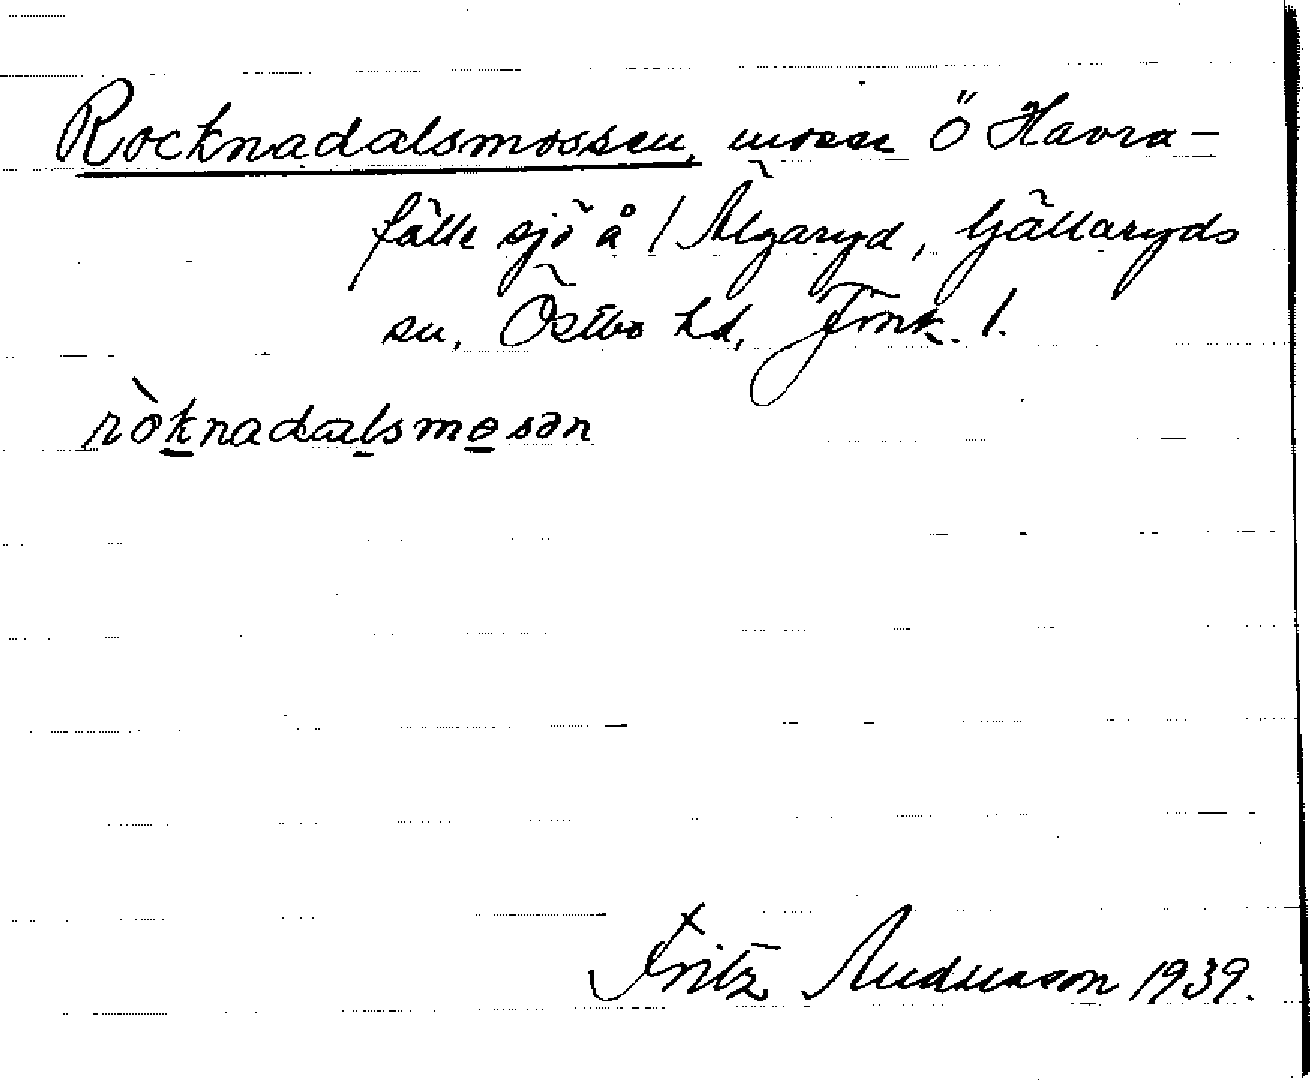 Rocknadalsmossen, mosse Ö Havra-
fälle sjö å / Älgaryd, Gällaryds
sn, Östbo hd, Jönk. l.
ròknadalsmosən
Fritz Andersson 1939.